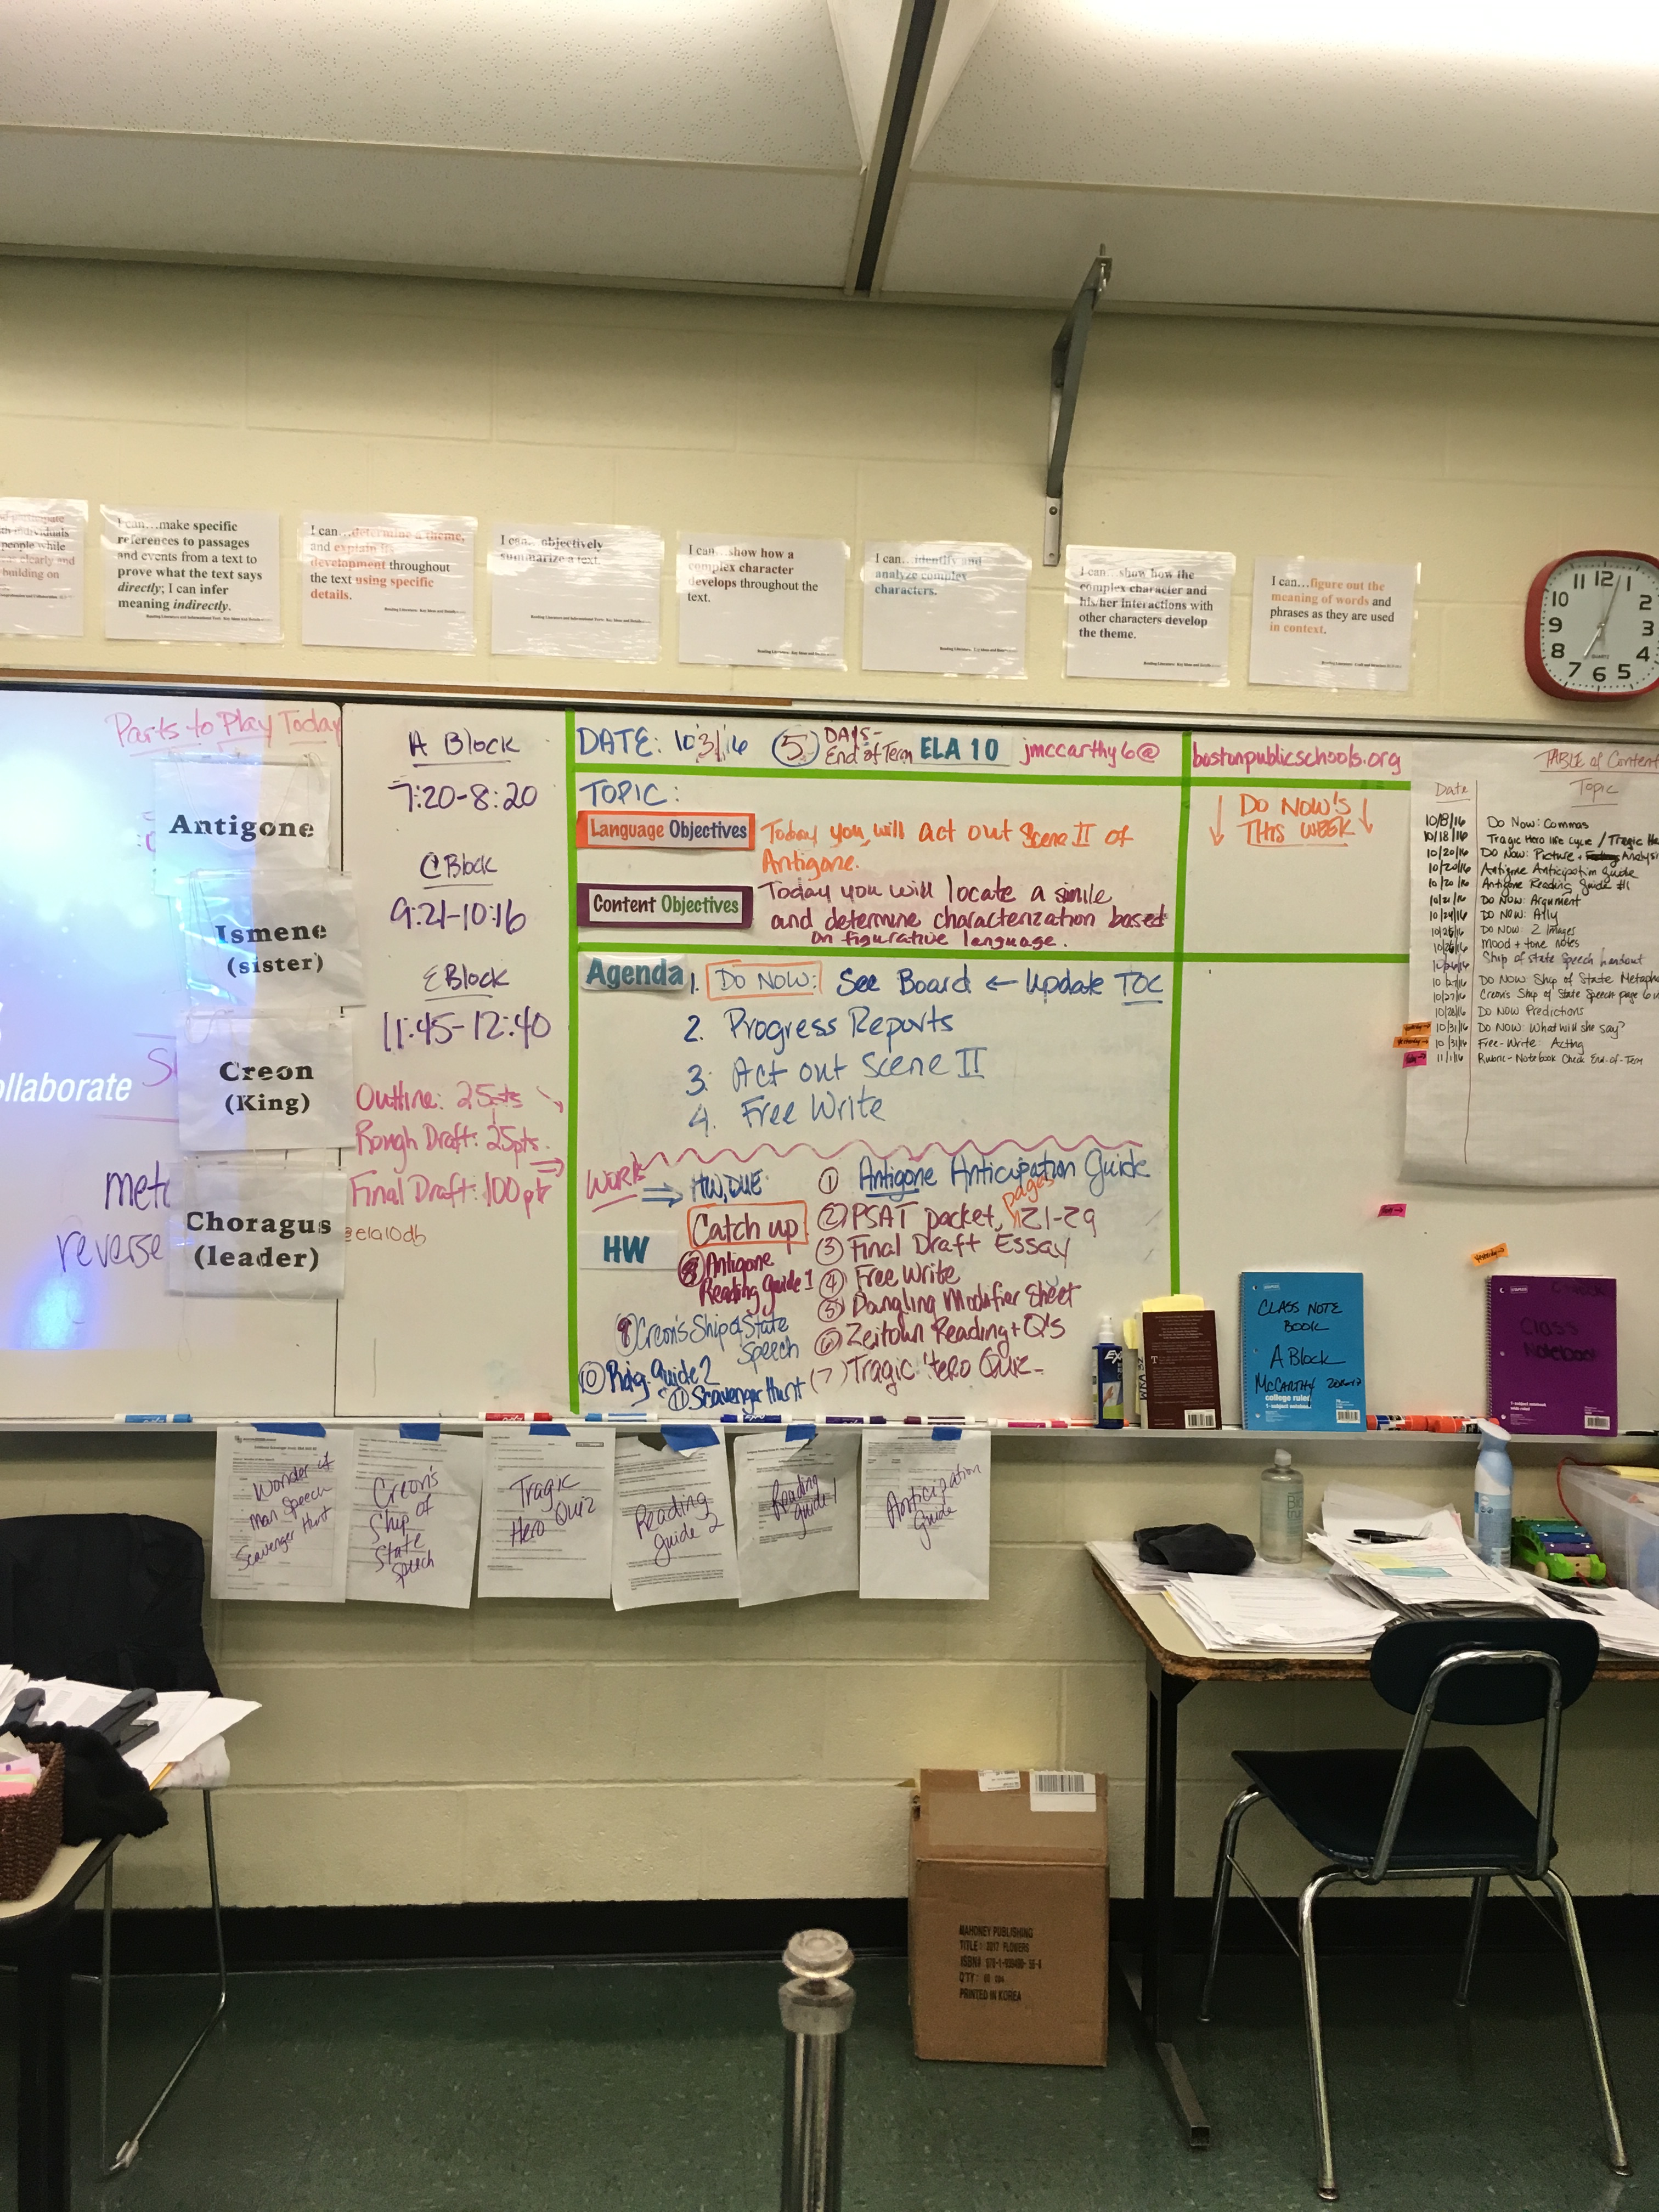 people while
clearly and
building on
I can...make specific
references to passages
and events from a text to
prove what the text says
directly; I can infer
meaning indirectly.
I can...determine a theme,
and explain its
development throughout
the text using specific
details.
I can...objectively
summarize a text.
I can...show how a
complex character
develops throughout the
text.
I can...identify and
analyze complex
characters.
I can...show how the
complex character and
his/her interactions with
other characters develop
the theme.
I can...figure out the
meaning of words and
phrases as they are used
in context.
11 12
10 2
9 3
8 4
7 6 5
QUARTZ
Parts to Play Today
Antigone
Ismene
(sister)
Creon
(King)
Choragus
(leader)
ollaborate
reverse
A Block
7:20-8:20
C Block
9:21-10:16
E Block
11:45-12:40
Outline: 25pts
Rough Draft: 25pts.
Final Draft: 100pts
@ela10db
DATE: 10/31/16 5 DAYS-
End of Term ELA 10 jmccarthy6@
bostonpublicschools.org
TOPIC:
Language Objectives Today you will act out Scene II of
Antigone.
Content Objectives Today you will locate a simile
and determine characterization based
on figurative language.
Agenda 1. DO NOW: See Board ← Update TOC
2. Progress Reports
3. Act out Scene II
4. Free Write
Work HW, DUE
Catch up
HW
① Antigone Anticipation Guide
② PSAT packet, pages 21-29
③ Final Draft Essay
④ Free Write
⑤ Dangling Modifier Sheet
⑥ Zeitoun Reading + Q's
(7) Tragic Hero Quiz
⑧ Antigone
Reading Guide 1
⑨ Creon's Ship of State
Speech
⑩ Rdg. Guide 2
⑪ Scavenger Hunt
DO NOW'S
THIS WEEK
TABLE of Content
Date Topic
10/8/16 Do Now: Commas
10/18/16 Tragic Hero life cycle / Tragic
10/20/16 DO NOW: Picture + Analysis
10/20/16 Antigone Anticipation Guide
10/20/16 Antigone Reading Guide #1
10/21/16 DO NOW: Argument
10/24/16 DO NOW: Ally
10/25/16 DO NOW: 2 Images
10/26/16 Mood + tone notes
10/26/16 Ship of State Speech handout
10/27/16 DO NOW Ship of State Metaph
10/27/16 Creon's Ship of State Speech page 6
10/28/16 DO NOW Predictions
Yesterday→ 10/31/16 DO NOW: What will she say?
Yesterday→ 10/31/16 Free-Write: Acting
11/1/16 Rubric-Notebook Check End-of-Term
Yesterday→
EXPO
CLASS NOTE
BOOK
A Block
McCARTHY
college ruled
1-subject notebook
Class
Notebook
1-subject notebook
Wonder of
Man Speech
Scavenger Hunt
Creon's
Ship of
State
Speech
Tragic
Hero Quiz
Reading
Guide 2
Reading
Guide 1
Anticipation
Guide
MAHONEY PUBLISHING
TITLE: 2017 FLOWERS
PRINTED IN KOREA